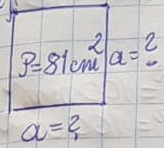 P=81cm² a=?
a=?